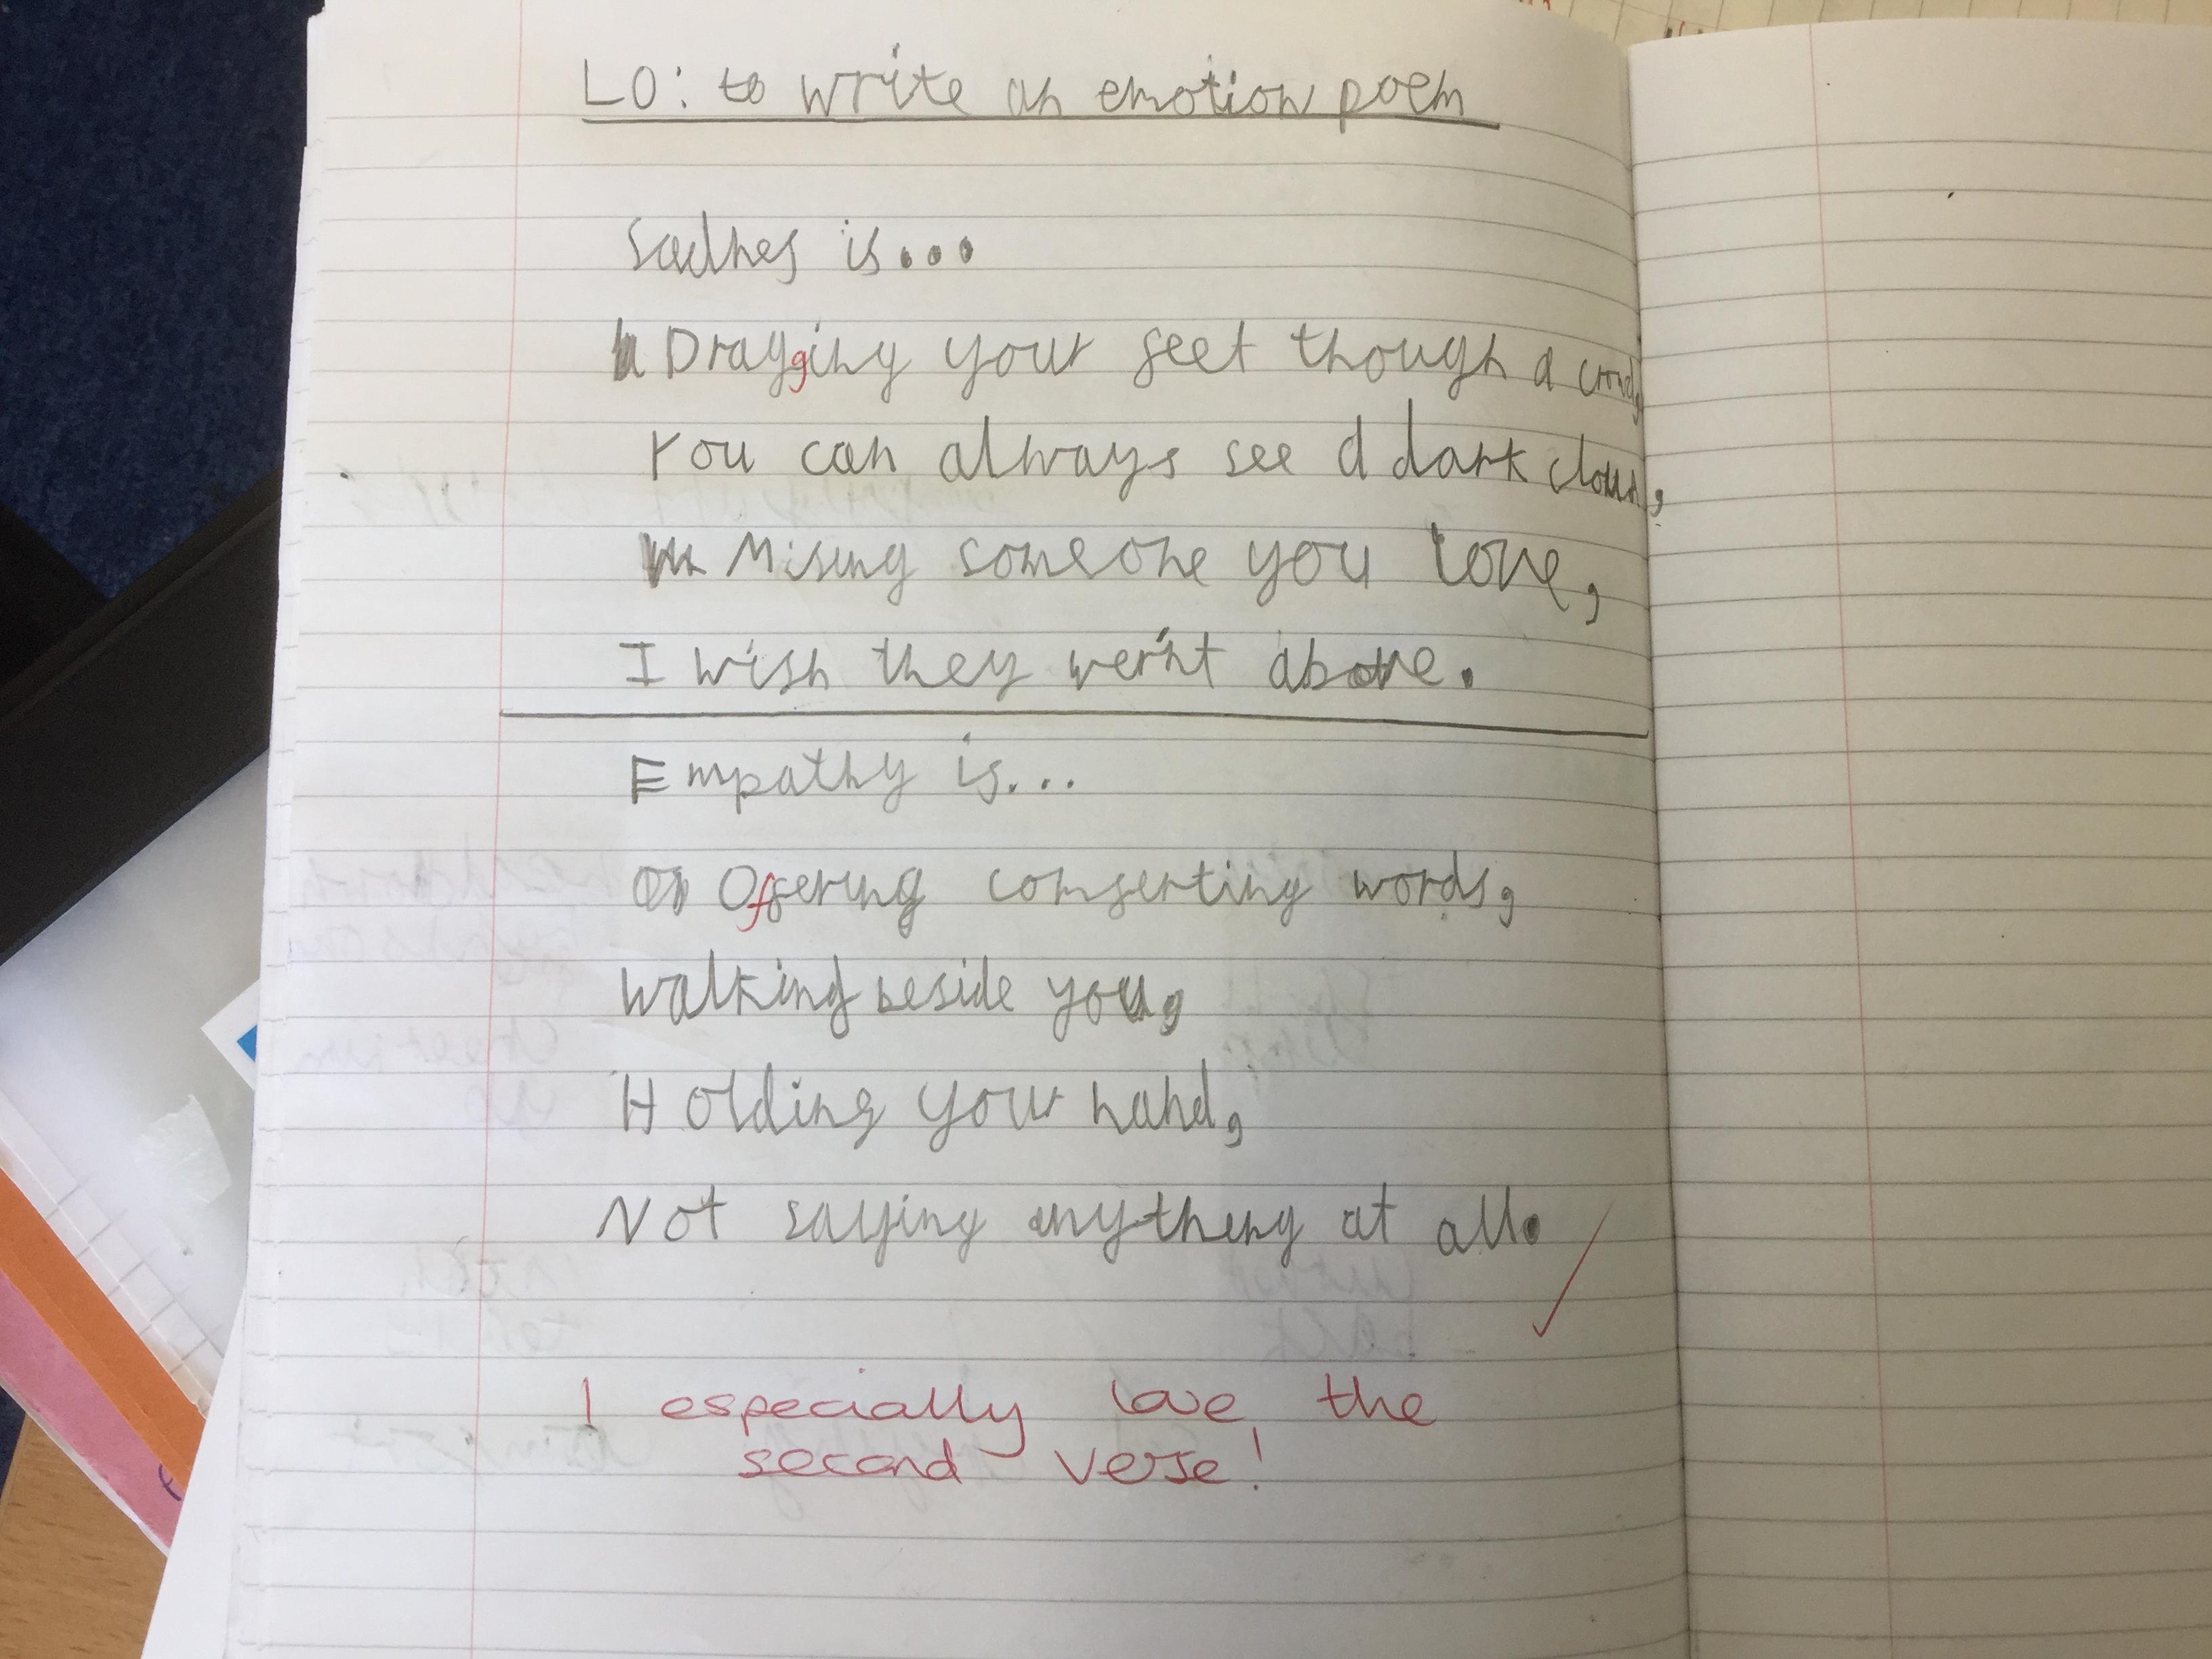 LO: to write an emotion poem
Sadnes is...
Dragging your feet though a crowd,
You can always see a dark cloud,
Mising someone you love,
I wish they wer'nt above.
Empathy is...
Offering comferting words,
Walking beside you,
Holding your hand,
Not saying anything at all.
I especially love the
second verse!